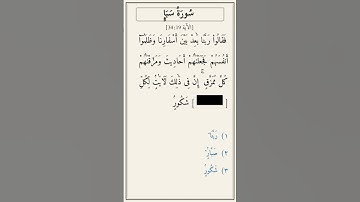 سُورَةُ سَبَإٍ
[الآية 34:19]
فَقَالُوا۟ رَبَّنَا بَٰعِدْ بَيْنَ أَسْفَارِنَا وَظَلَمُوٓا۟
أَنفُسَهُمْ فَجَعَلْنَٰهُمْ أَحَادِيثَ وَمَزَّقْنَٰهُمْ
كُلَّ مُمَزَّقٍ ۚ إِنَّ فِى ذَٰلِكَ لَءَايَٰتٍ لِّكُلِّ
[ ] شَكُورٍ
١) رَبَّنَا
٢) صَبَّارٍ
٣) شَكُورٍ